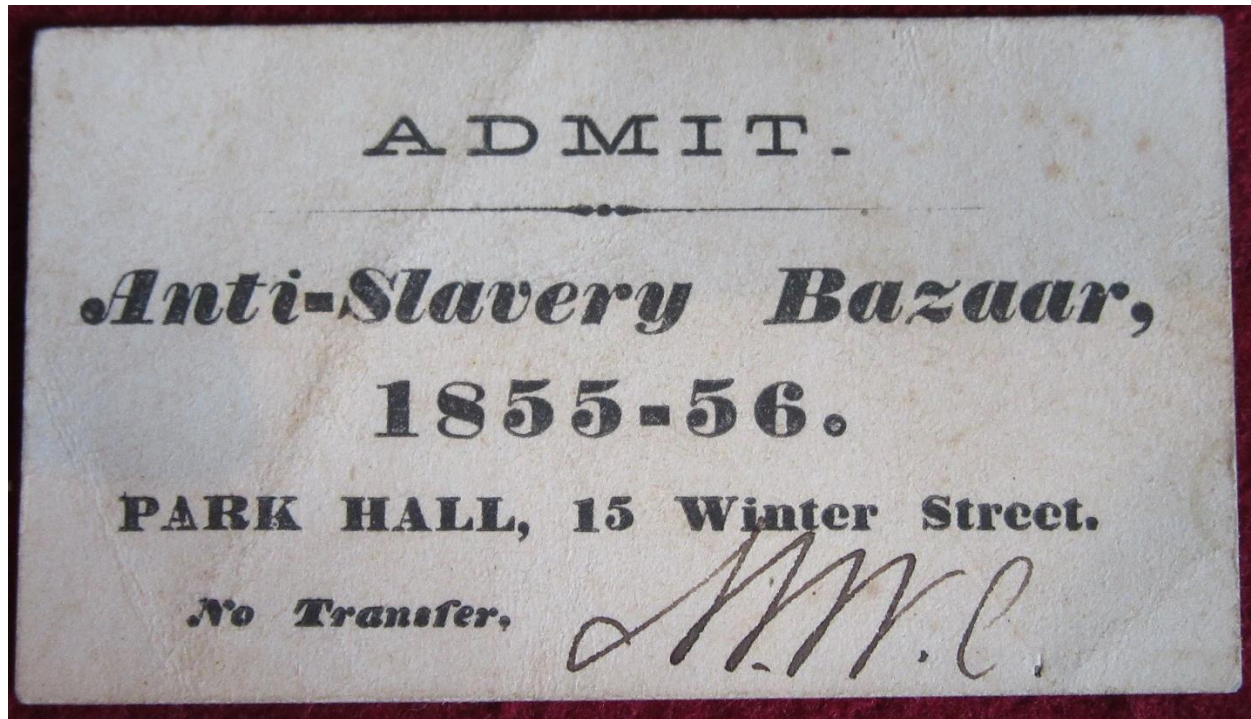 ADMIT.
Anti-Slavery Bazaar,
1855-56.
PARK HALL, 15 Winter Street.
No Transfer. M.W.C.